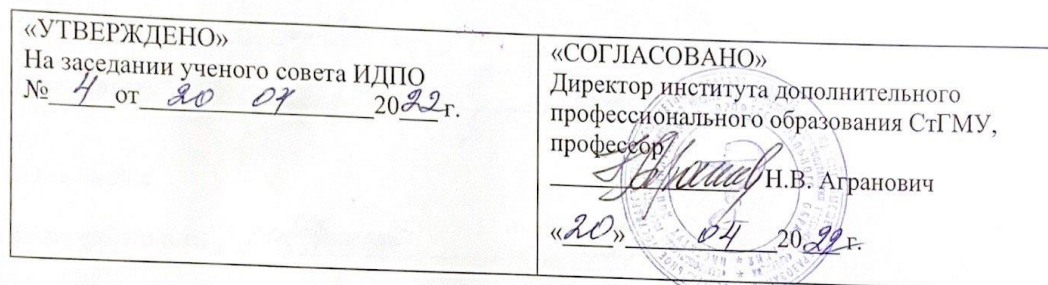 «УТВЕРЖДЕНО»
На заседании ученого совета ИДПО
№ 4 от 20 04 2022г.
«СОГЛАСОВАНО»
Директор института дополнительного
профессионального образования СтГМУ,
профессор
Н.В. Агранович
«20» 04 2022г.